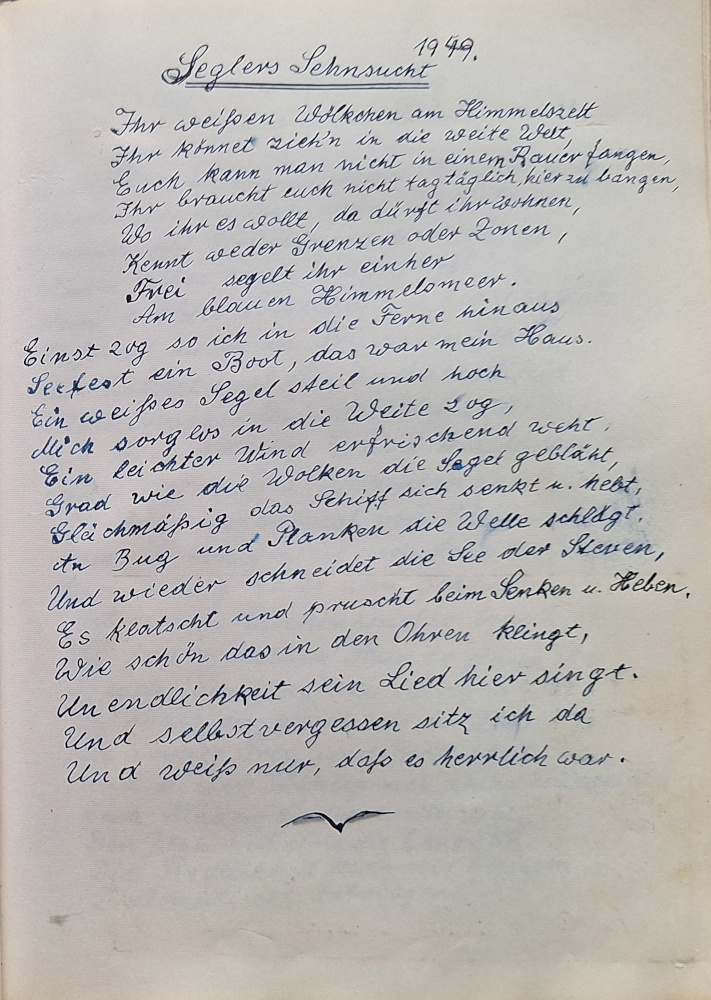 1949.
Seglers Sehnsucht
Ihr weißen Wölkchen am Himmelszelt
Ihr könnet zieh'n in die weite Welt,
Euch kann man nicht in einem Bauer fangen,
Ihr braucht euch nicht tagtäglich, hier zu bangen,
Wo ihr es wollt, da dürft ihr wohnen,
Kennt weder Grenzen oder Zonen,
Frei segelt ihr einher
Am blauen Himmelsmeer.
Einst zog so ich in die Ferne hinaus
Seefest ein Boot, das war mein Haus.
Ein weißes Segel steil und hoch
Mich sorglos in die Weite zog,
Ein leichter Wind erfrischend weht.
Grad wie die Wolken die Segel gebläht,
Gleichmäßig das Schiff sich senkt u. hebt,
An Bug und Planken die Welle schlägt.
Und wieder schneidet die See der Steven,
Es klatscht und pruscht beim Senken u. Heben.
Wie schön das in den Ohren klingt,
Unendlichkeit sein Lied hier singt.
Und selbstvergessen sitz ich da
Und weiß nur, daß es herrlich war.